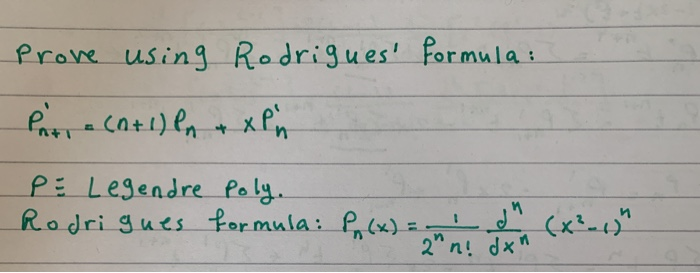 Prove using Rodrigues' formula:
P'ₙ₊₁ = (n+1) Pₙ + x P'ₙ
P ≡ Legendre Poly.
Rodrigues formula: Pₙ(x) = 1/(2ⁿ n!) dⁿ/dxⁿ (x²-1)ⁿ